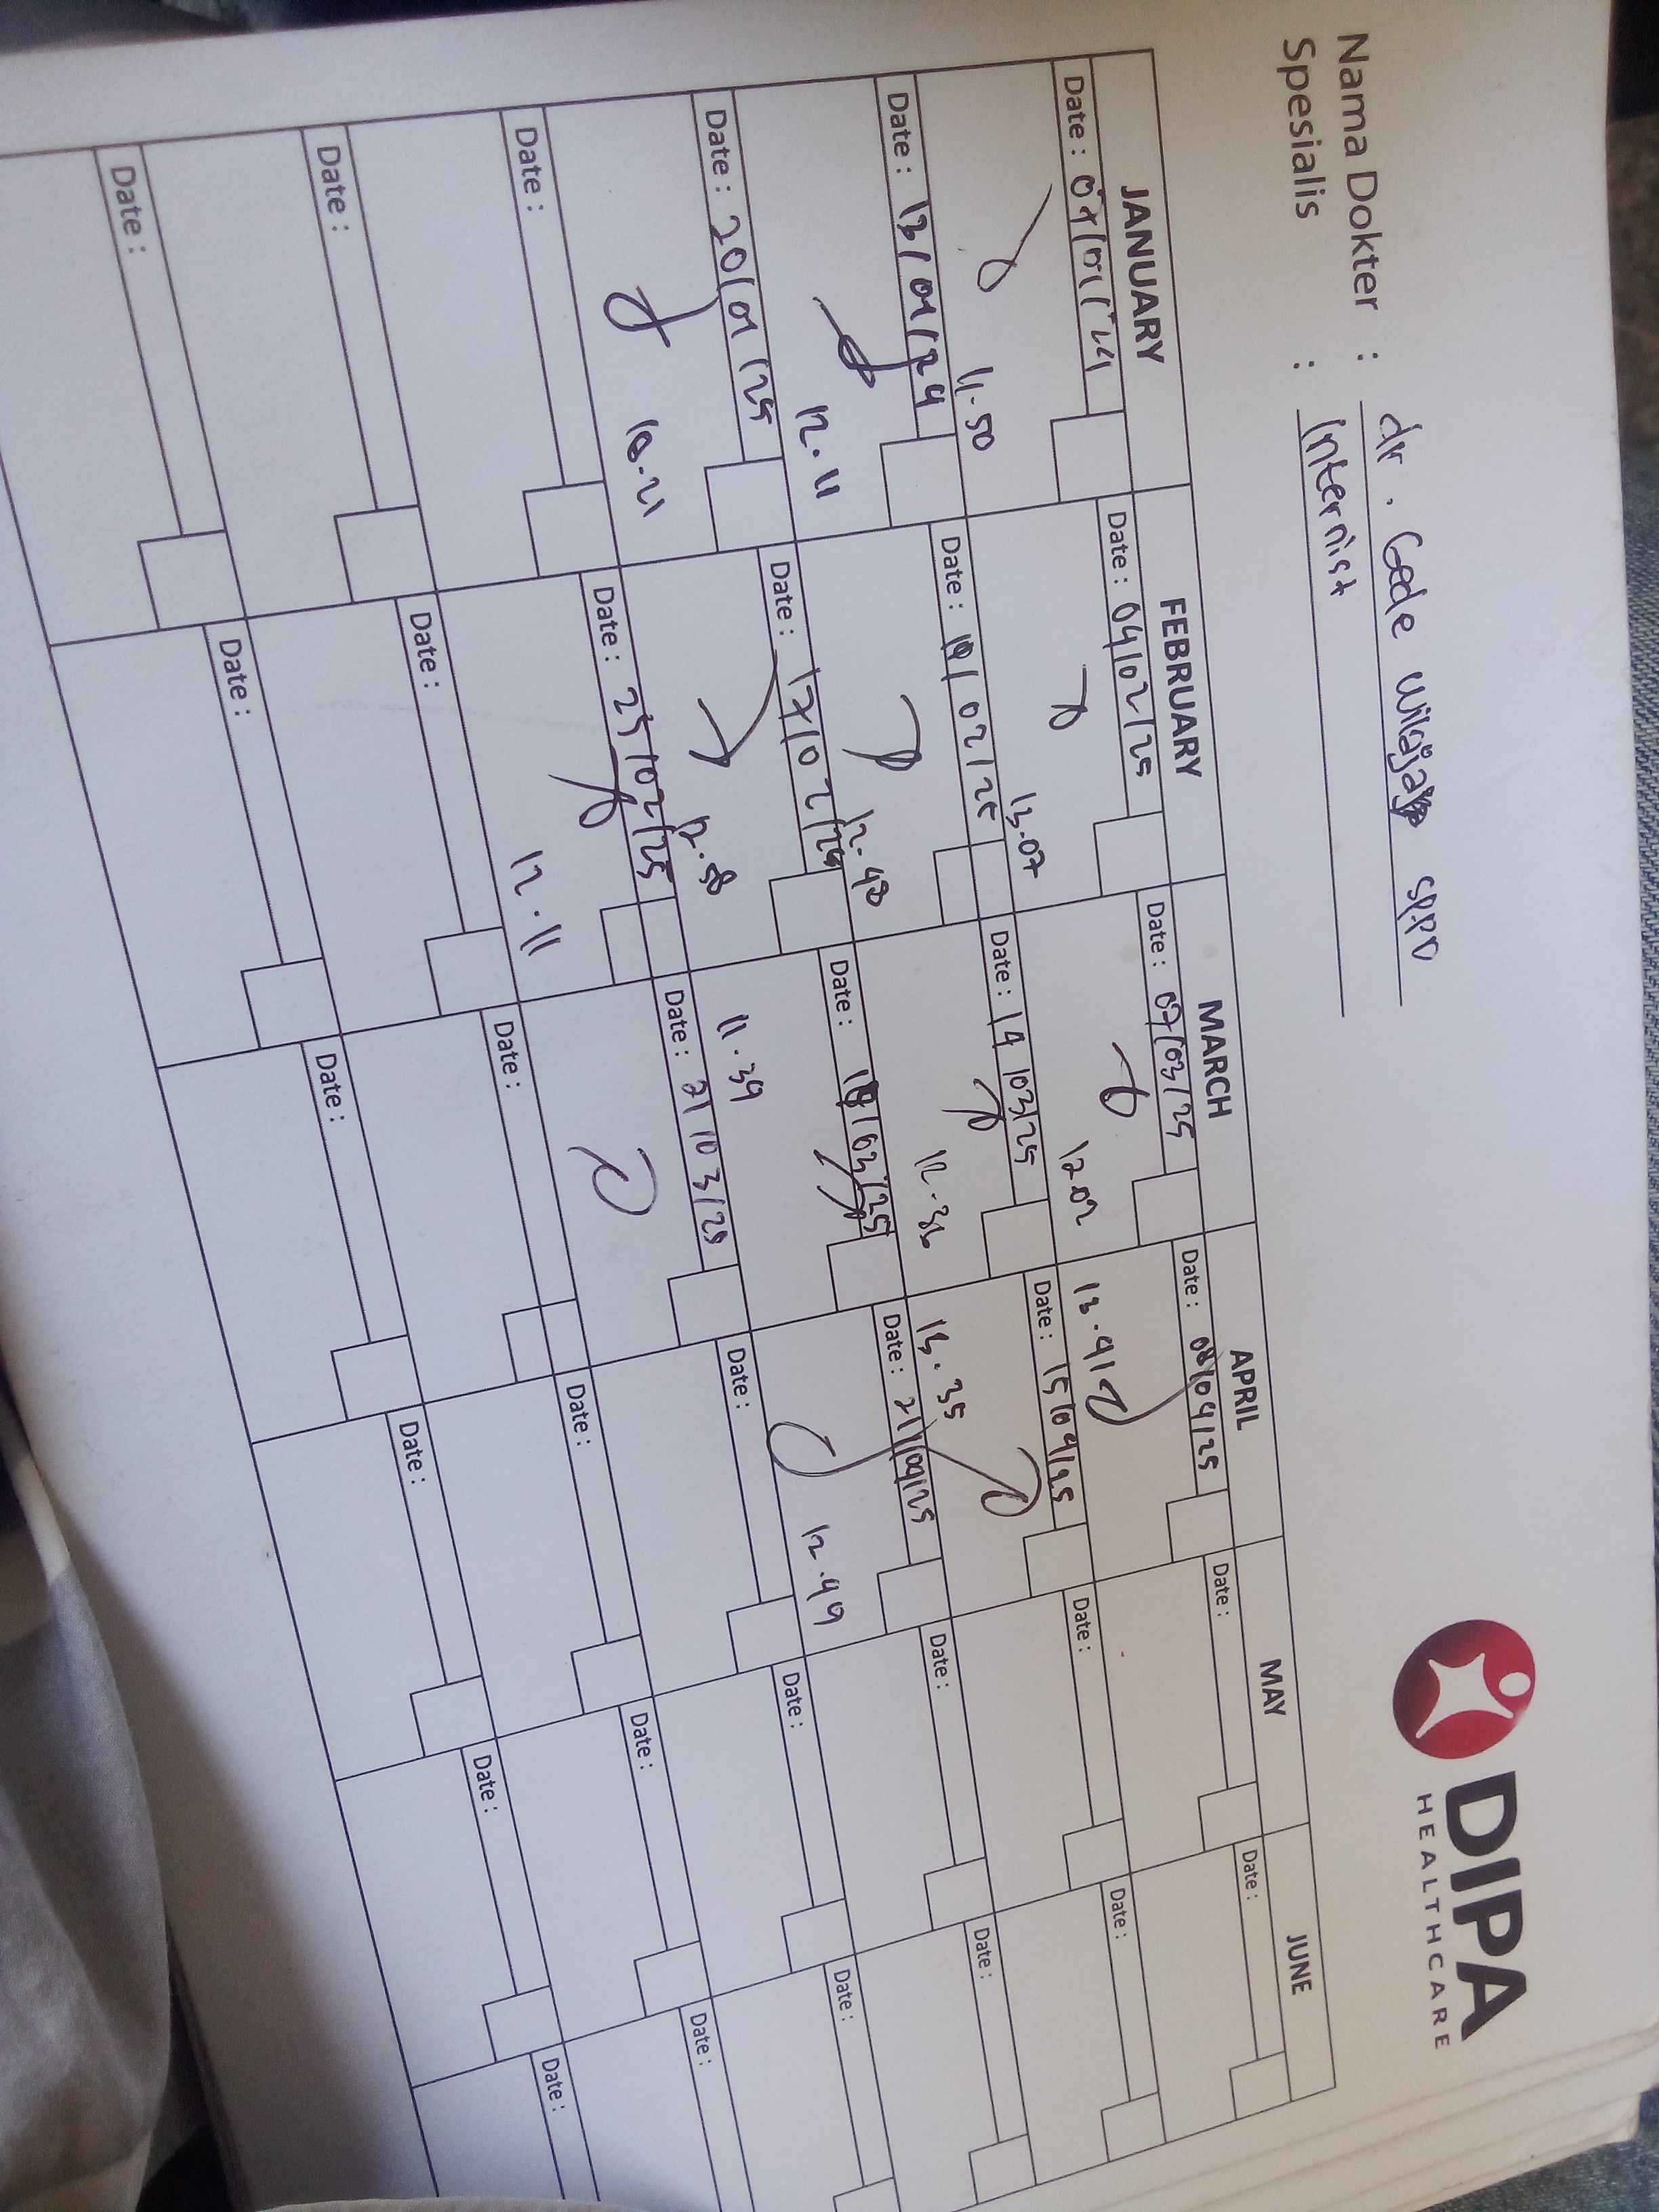 DIPA
HEALTHCARE
Nama Dokter : dr. Gede SpPD
Spesialis : Internist
JANUARY FEBRUARY MARCH APRIL MAY JUNE
Date : /01/24 Date : 04/02/25 Date : 07/03/25 Date : 08/04/25 Date : Date :
11.50 13.07 12.02 13.41
Date : 13/01/24 Date : 10/02/25 Date : 14/03/25 Date : 15/04/25 Date : Date :
12.11 12.48 12.36 13.35
Date : 20/01/25 Date : 17/02/25 Date : 18/03/25 Date : 21/04/25 Date : Date :
10.21 12.58 11.39 12.49
Date : Date : 25/02/25 Date : 21/03/25 Date : Date : Date :
12.11
Date : Date : Date : Date : Date : Date :
Date : Date : Date : Date : Date : Date :